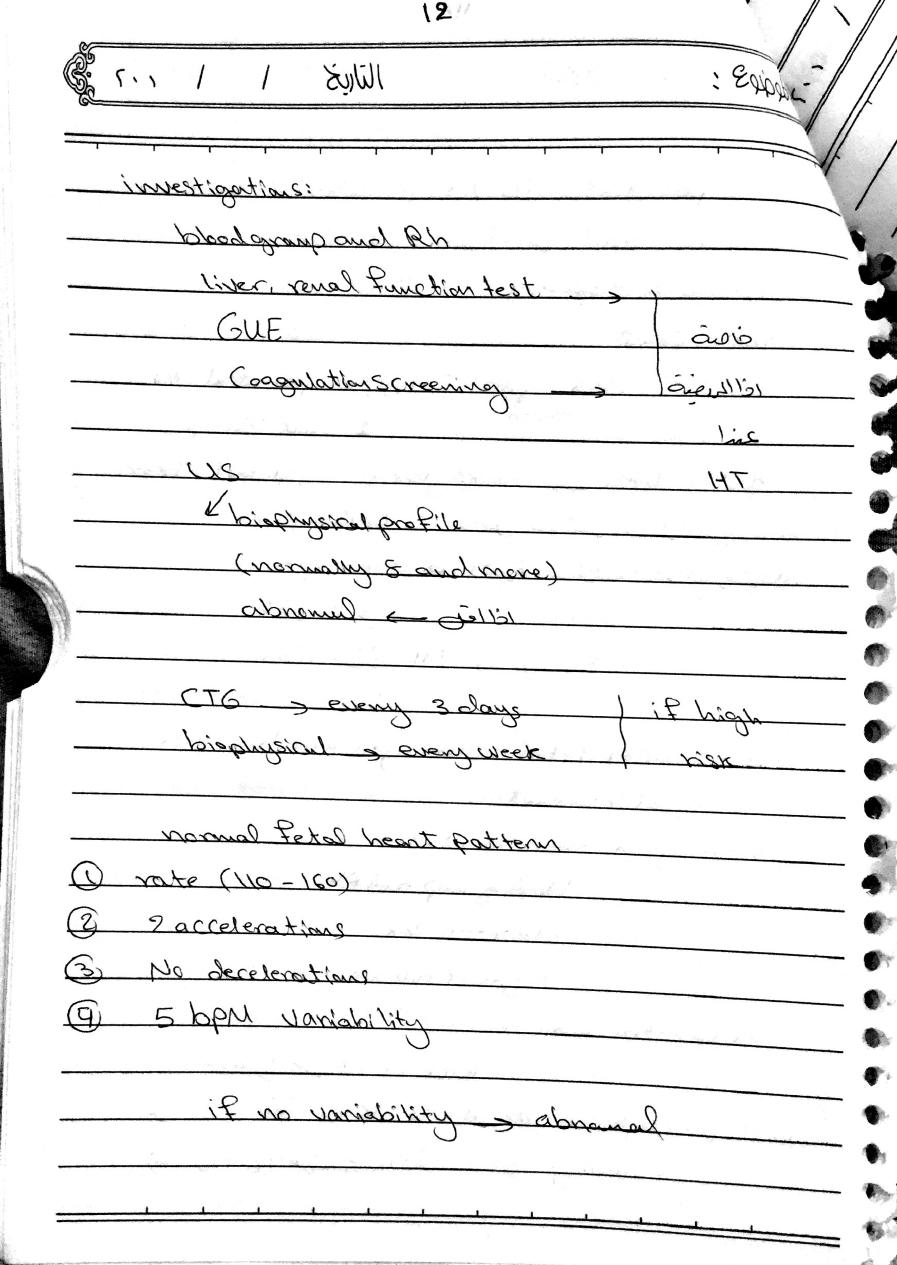 12
موضوع : التاريخ / / ٢٠١
investigations:
blood group and Rh
liver, renal function test →
GUE خاصة
Coagulation screening → اذا المريضة
عندها
US HT
↙ biophysical profile
(normally 8 and more)
abnormal ← اذا اقل
CTG → every 3 days if high
biophysical → every week risk
normal fetal heart pattern
① rate (110-160)
② 2 accelerations
③ No decelerations
④ 5 bpM variability
if no variability → abnormal